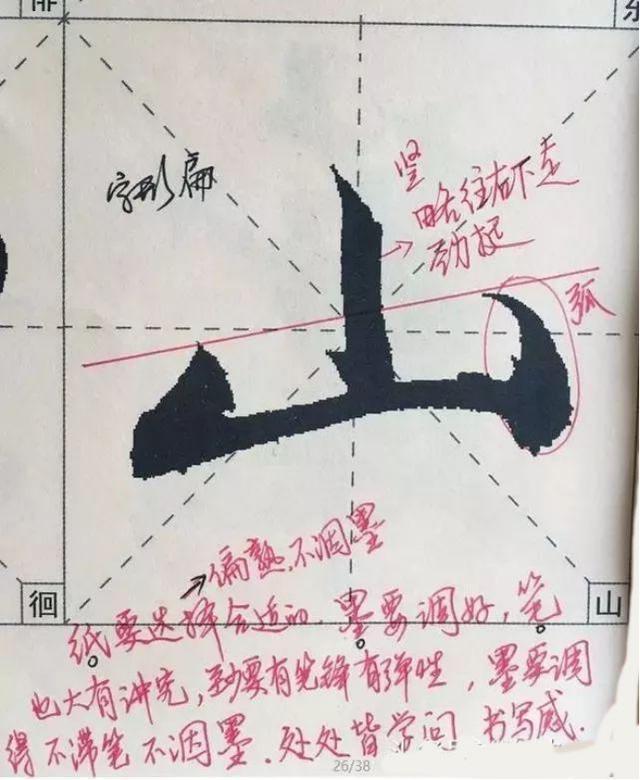 竖
字形扁
略往右下走
劲挺
弧
山
偏熟,不洇墨
徊
山
纸要选择合适的.墨要调好,笔
也大有讲究,至少要有笔锋有弹性,墨要调
得不滞笔不洇墨.处处皆学问 书写感.
26/38